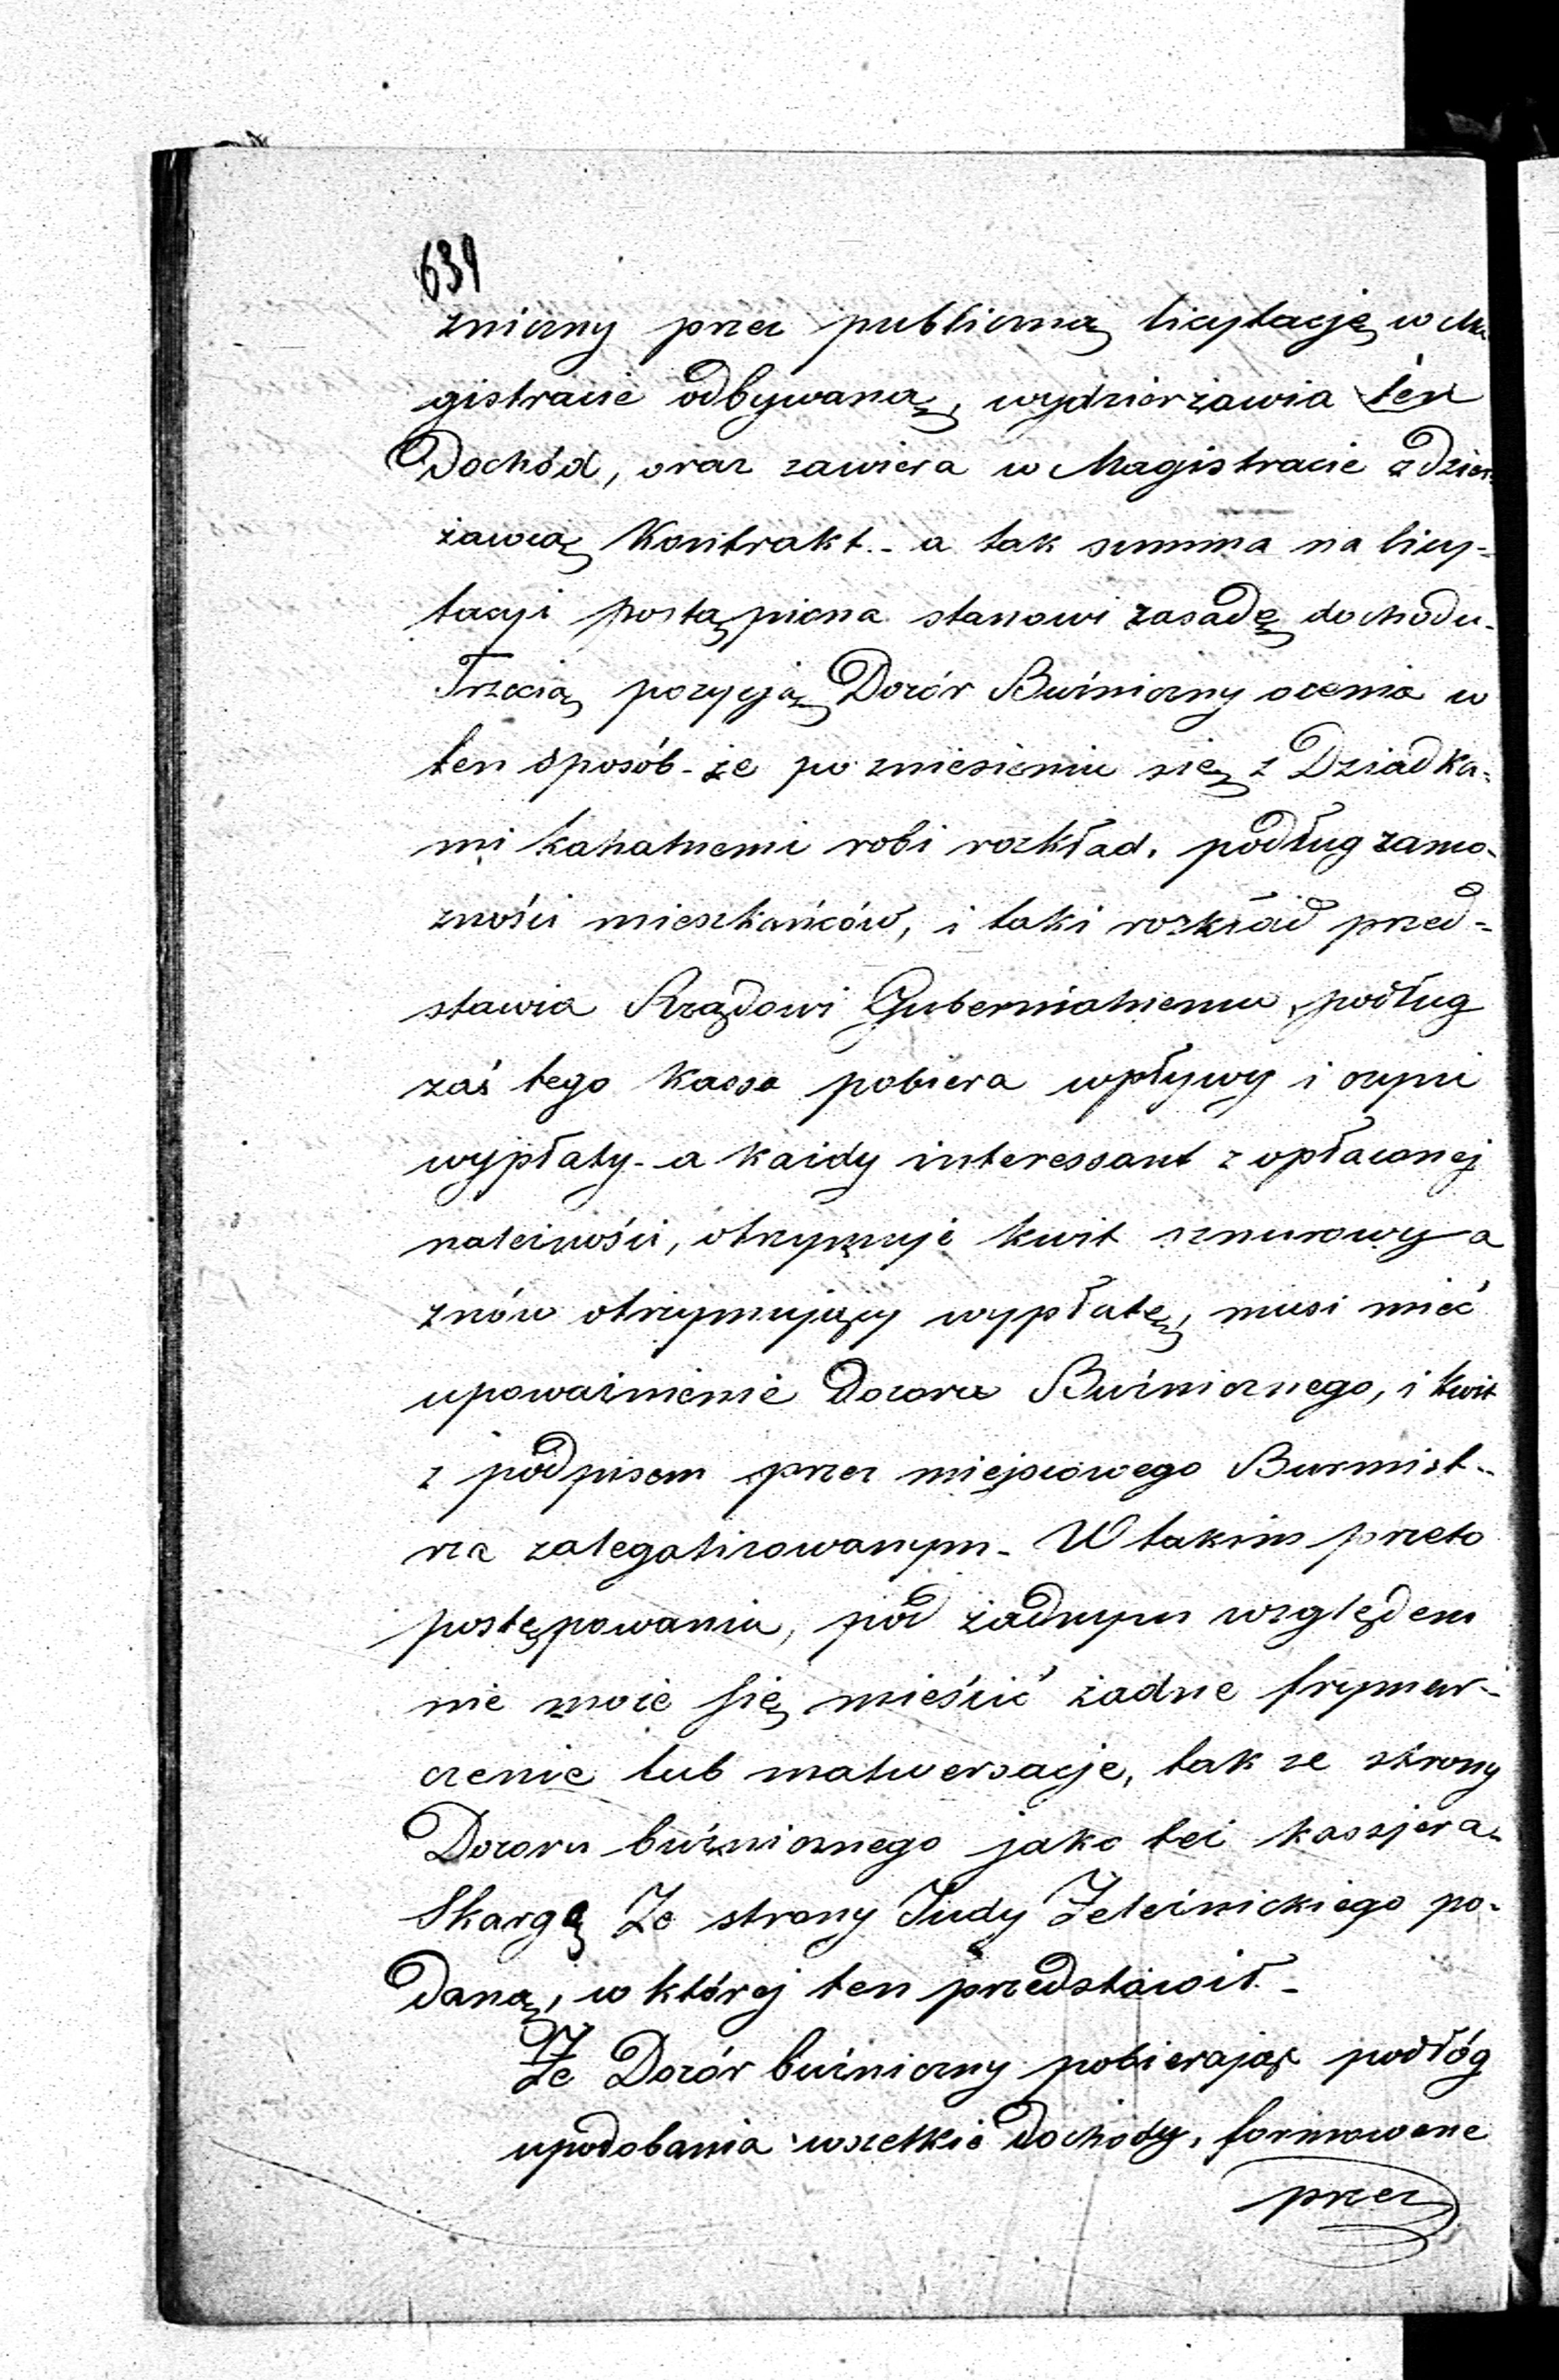 634
zniczny przez publiczną licytację w Ma
gistracie odbywaną, wydzierżawia ten
Dochód, oraz zawiera w Magistracie z dzier-
żawcą Kontrakt - a tak summa na licy-
tacji postąpiona stanowi zasadę dochodu -
Trzecią pozycją Dozór Buźniczny ocenia w
ten sposób - że po zniesieniu się z Dziadka-
mi kahalnemi robi rozkład, podług zamo-
żności mieszkańców, i taki rozkład przed-
stawia Rządowi Gubernialnemu, podług
zaś tego Kassa pobiera wpływy i czyni
wypłaty - a każdy interessant z opłaconej
należności, otrzymuje kwit sznurowy - a
znów otrzymujący wypłatę, musi mieć
upoważnienie Dozoru Buźnicznego, i kwit
z podpisem przez miejscowego Burmist-
rza zalegalizowanym - W takim przeto
postępowaniu, pod żadnym względem
nie może się mieścić żadne frymar-
czenie lub malwersacje, tak ze strony
Dozoru buźnicznego jako też kassjera -
Skargę Ze strony Judy Żeleźnickiego po-
daną, w której ten przedstawił -
Że Dozór buźniczny pobierając podłóg
upodobania wszelkie dochody, formowane
przez